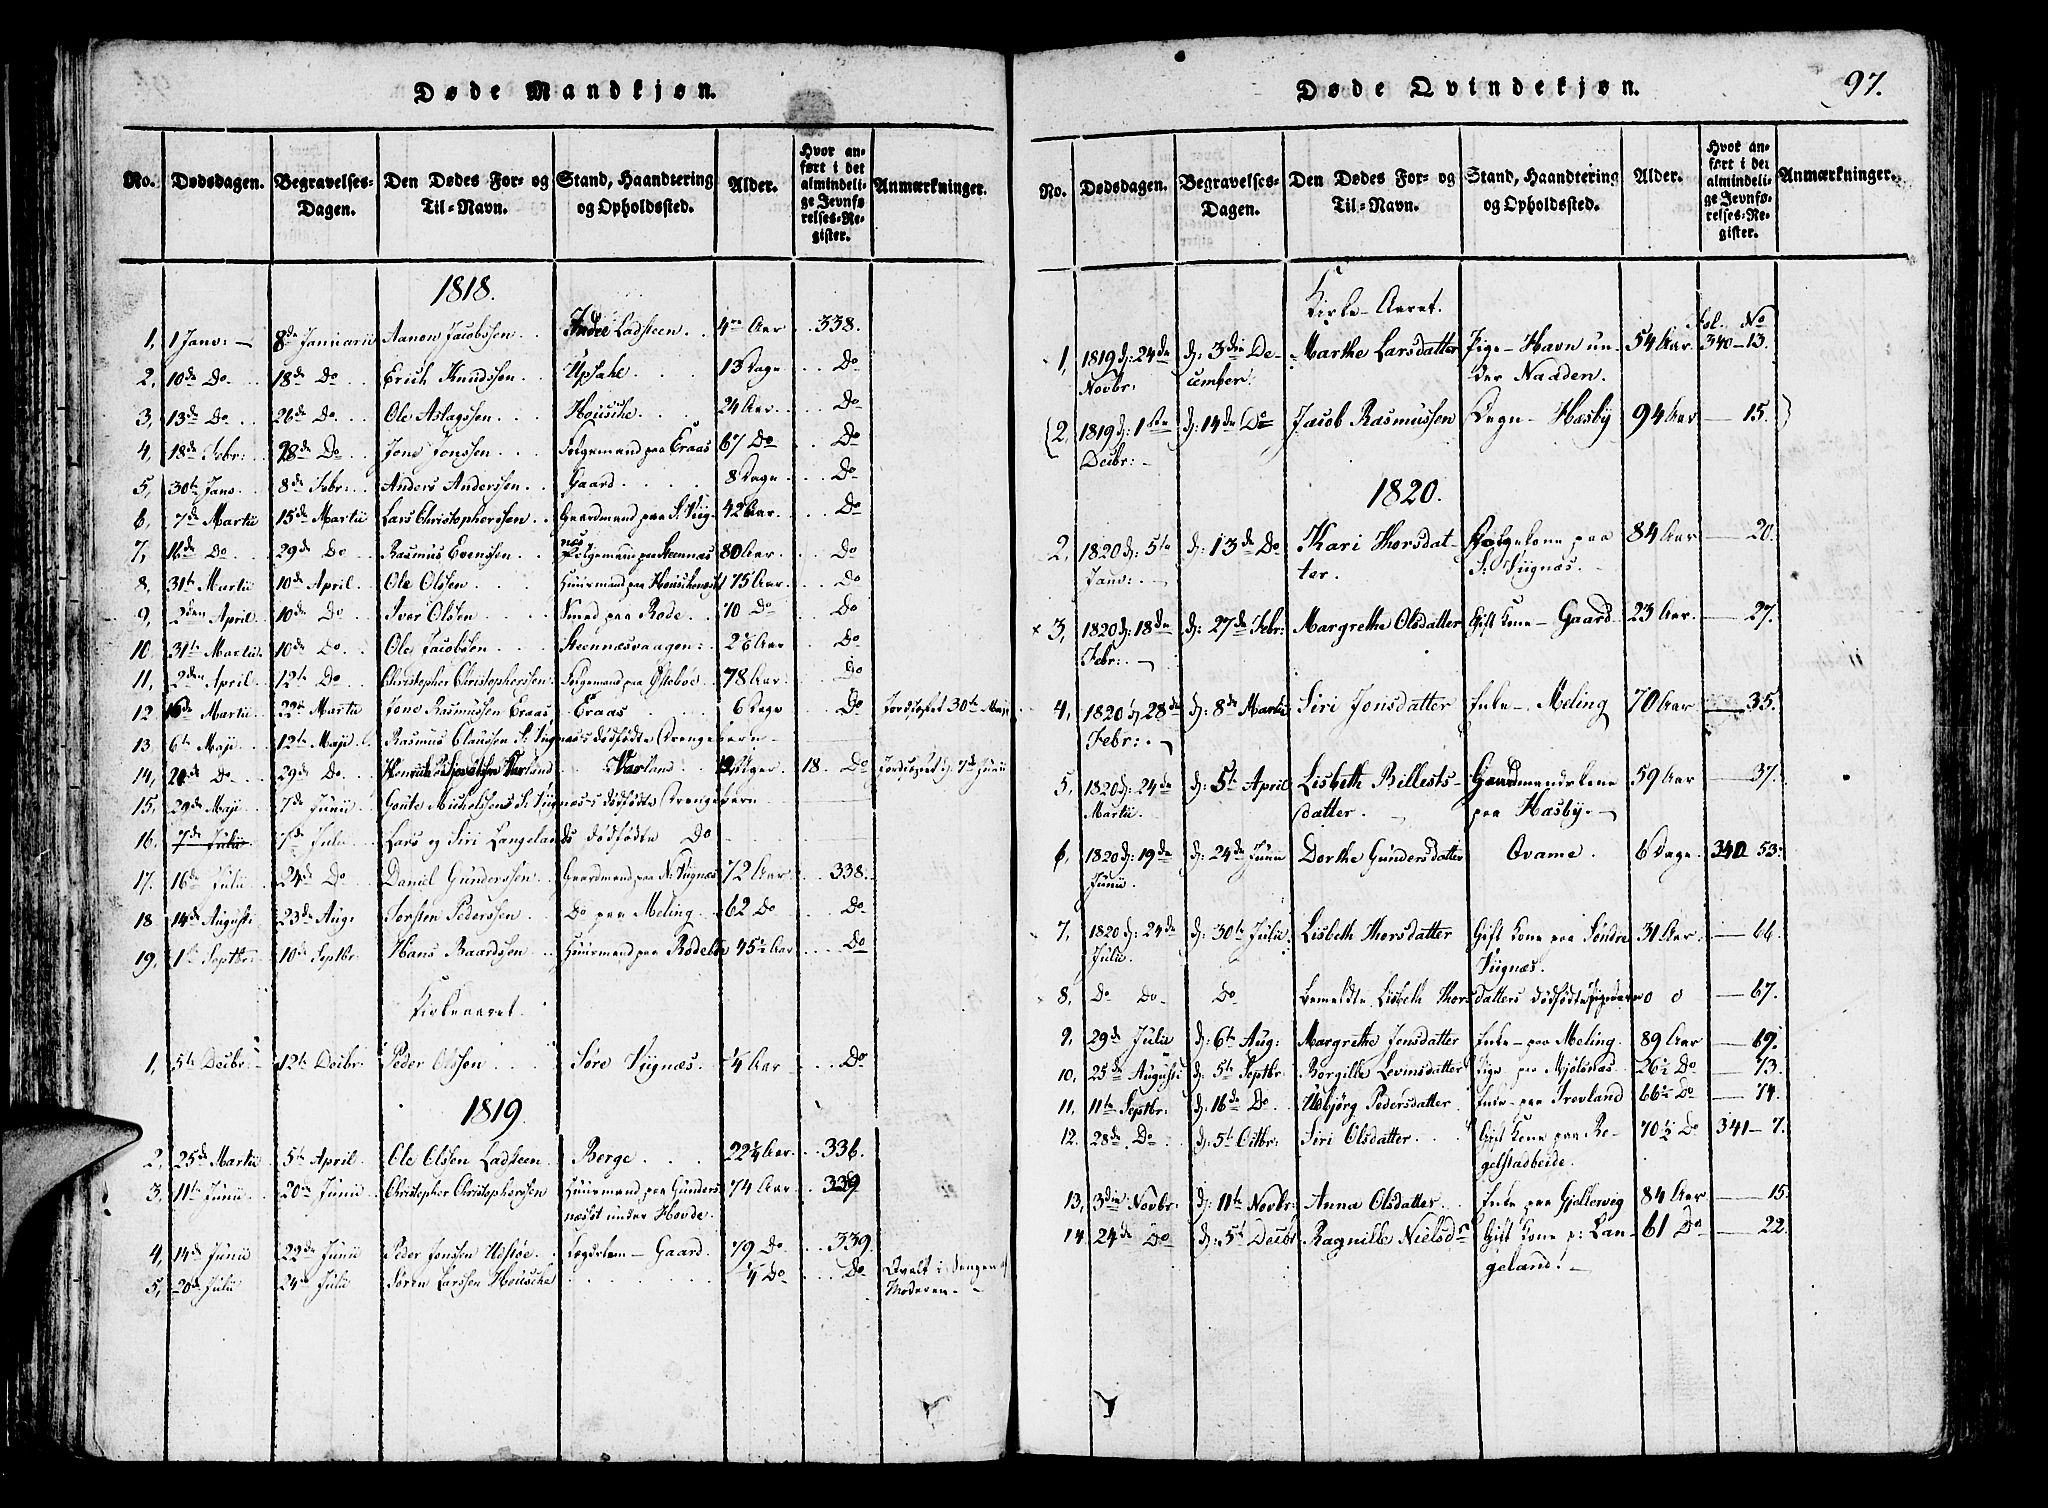 Døde Mandkjøn.
No. Dødsdagen. Begravelses-Dagen. Den Dødes For- og Til-Navn. Stand, Haandtering og Opholdssted. Alder. Hvor anført i det almindelige Jevnførelses-Register. Anmærkninger.
1818.
1, 1 Janv: 8de Januarii Aanon Jacobssen Indre Ladsteen 4re Aar 338.
2, 10de Do 18de Do Erich Knudssen Upsahe 13 Dage Do
3, 13de Do 26de Do Ole Aslagssen Housche 24 Aar Do
4, 18de Febr: 28de Do Jone Jonssen Folgemand paa Eraas 67 Do Do
5, 30te Janv. 8de Febr: Anders Anderssen Gaard 8 Dage Do
6, 7de Martii 15de Martii Lars Christopherssen Gaardmand paa S: Viig- 42 Aar Do
7, 16de Do 29de Do Rasmus Evenssen næs Folgemand paa Steennæs 80 Aar Do
8, 31te Martii 10de April Ole Olsen Huusmand paa 75 Aar Do
9, 2den April 10de Do Iver Olsen Smed paa Rode 70 Do Do
10, 31te Martii 10de Do Ole Jacobsen Steennæsvaagen 2½ Aar Do
11, 2den April 12te Do Christopher Christopherssen Folgemand paa Østebøe 78 Aar Do
12 16de Martii 22de Martii Jone Rasmussen Eraas Eraas 6 Dage Do Jordfæstet 30te Maji
13. 6te Maji 12te Maji Rasmus Claussen S: Viignæs's dødfødte Drengebarn
14, 20de Do 29de Do Varland Uger 18. Do Jordfæstet d: 7de Junii
15. 29de Maji 7de Junii Goute Michelssens S: Viignæs-s dødfødte Drengebarn
16. 7de Julii 7de Julii Lars og Siri Langelands dødfødte Do
17. 16de Julii 24de Do Daniel Gunderssen Gaardmand paa N: Viignæs 72 Aar 338.
18 14de Augusti 23de Aug: Torsten Pederssen Do paa Meling 62 Do Do
19, 1ste Septbr: 10de Septbr: Hans Baardssen Huusmand paa Rodeløe 45½ Aar Do
Kirkeaaret.
1, 5te Decbr: 12te Decbr: Peder Olssen Søre Viignæs ¼ Aar Do
1819.
2, 25de Martii 5te April Ole Olssen Ladsteen Berge 22¼ Aar 336.
3, 11te Junii 20de Junii Christopher Christopherssen Huusmand paa Gunders- 74 Aar 339
næsset under Hovde.
4, 14de Junii 29de Junii Peder Jonsen Udstøe Lægdslem - Gaard 79 Do 339.
5, 20de Julii 24de Julii Søren Larssen Housche ¼ Do Do Qvalt i Sengen af
Moderen -
Døde Qvindekjøn. 97.
No. Dødsdagen. Begravelses-Dagen. Den Dødes For- og Til-Navn. Stand, Haandtering og Opholdssted. Alder. Hvor anført i det almindelige Jevnførelses-Register. Anmærkninger.
Kirke-Aaret. Fol. No
1, 1819 d: 24de d: 3die De- Marthe Larsdatter Pige - Havn un- 54 Aar 340-13.
Novbr: cember: der Naaden.
(2, 1819 d: 1ste d: 14de Do Jacob Rasmussen Hæsby 94 Aar 15. )
Decbr:
1820.
2, 1820 d: 5te d: 13de Do Kari Thorsdat- Folgekone paa 84 Aar 20.
Janv: ter. S: Viignæs.
× 3, 1820 d: 18de d: 27de Febr: Margrethe Olsdatter Gift Kone - Gaard 23 Aar 27.
Febr:
4, 1820 d: 28de d: 8de Martii Siri Jonsdatter Enke - Meling 70 Aar 35.
Febr:
5, 1820 d: 24de d: 5te April Lisbeth Billests- Gaardmandskone 59 Aar 37.
Martii. datter. paa Hæsby.
6, 1820 d: 19de d: 24de Junii Dorthe Gundersdatter Qvame. 6 Dage 340 53.
Junii.
7, 1820 d: 24de d: 30te Julii Lisbeth Thorsdatter Gift Kone paa Søndre 31 Aar 66.
Julii. Viignæs.
8, Do Do Do bemeldte Lisbeth Thorsdatters dødfødte Pigebarn 0 0 67.
9, 29de Julii d: 6te Aug: Margrethe Jonsdatter Enke - paa Meling 89 Aar 69.
10, 25de Augusti d: 5te Septbr: Borgille Levinsdatter Pige paa Mjølsnæs 26½ Do 73.
11, 11te Septbr: d: 16de Do Usbjørg Pedersdatter Enke - paa Trovland 66½ Do 74.
12. 28de Do d: 5te Octbr: Siri Olsdatter Gift Kone paa Re- 70½ Do 341-7.
gelstadbeide.
13, 3die Novbr: d: 11te Novbr: Anna Olsdatter Enke paa Gjellerviig 84 Aar 15.
14 24de Do d: 5te Decbr: Ragnille Nielsdr Gift Kone p: Lan- 61 Do 22.
geland!